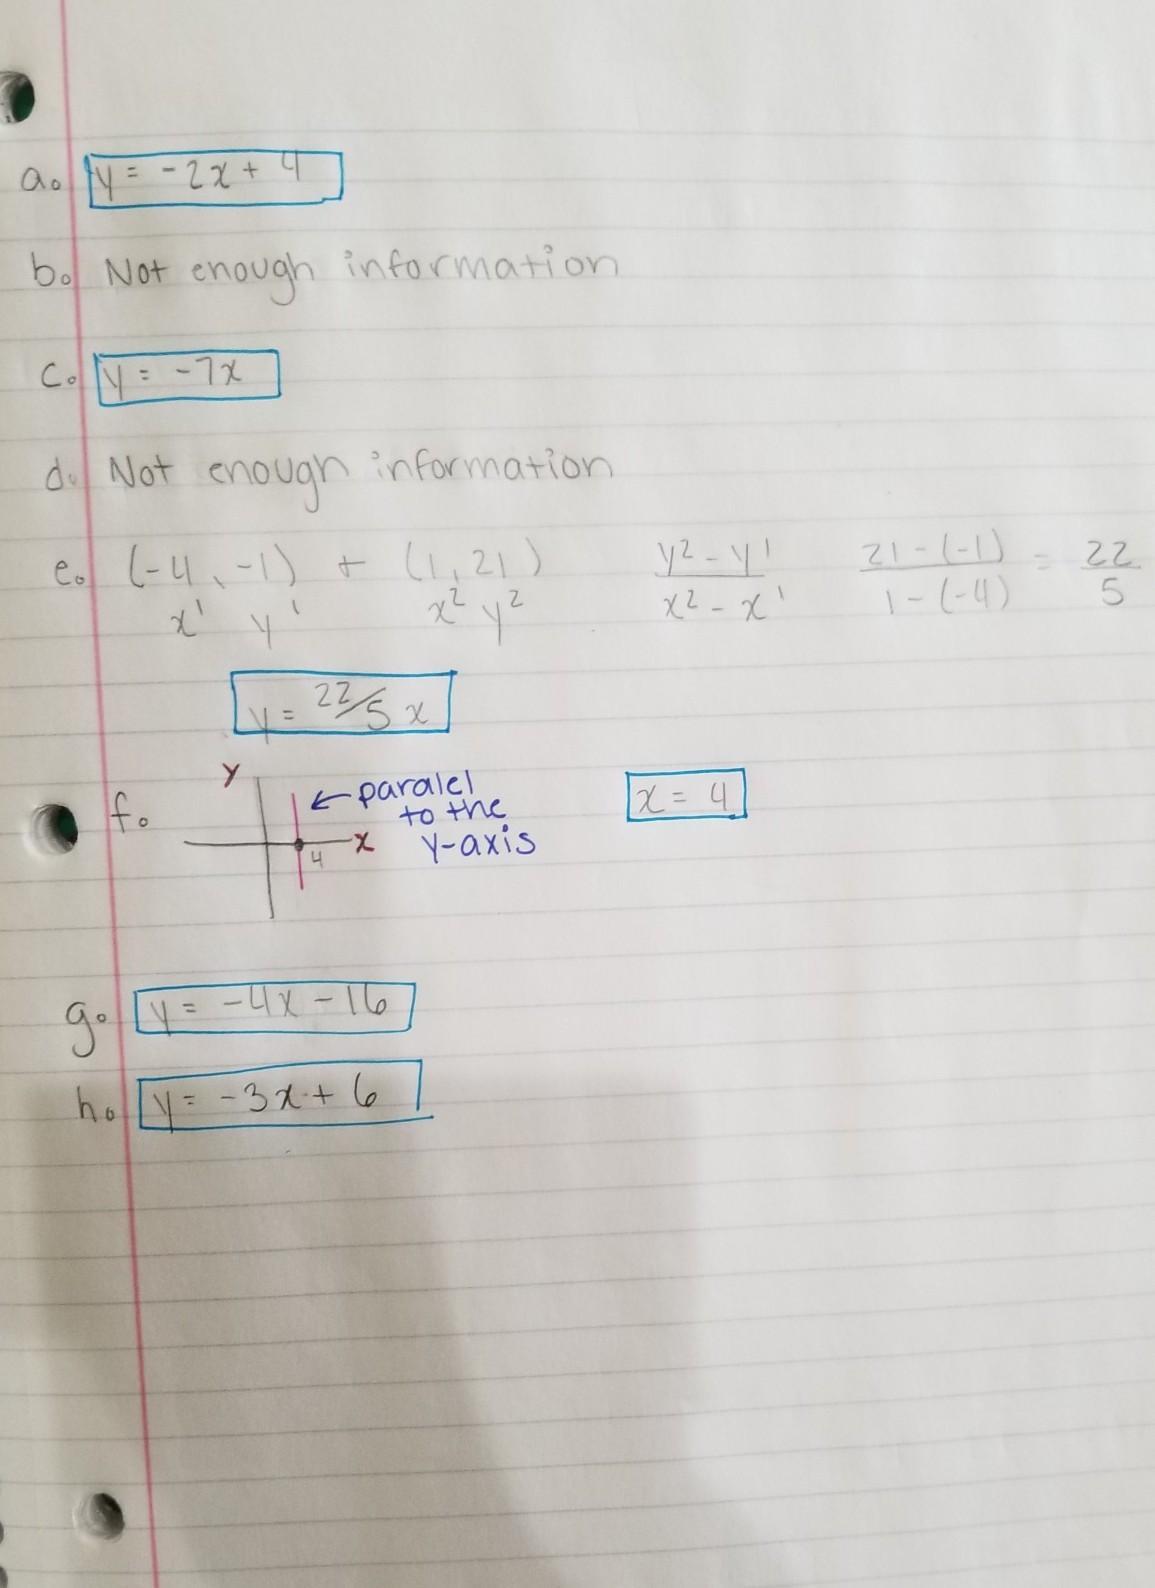 a. y = -2x + 4
b. Not enough information
c. y = -7x
d. Not enough information
e. (-4, -1) + (1, 21) y² - y¹ / x² - x¹ 21 - (-1) / 1 - (-4) = 22 / 5
x¹ y¹ x² y²
y = 22/5 x
f. y ← paralel to the y-axis x = 4
x
4
g. y = -4x - 16
h. y = -3x + 6